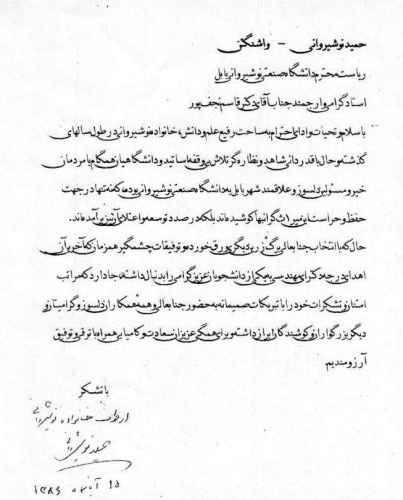 حمید نوشیروانی - واشنگتن
ریاست محترم دانشگاه صنعتی نوشیروانی بابل
استاد گرامی و ارجمند جناب آقای دکتر قاسم نجف پور
با سلام و تحیات و ادای احترام به ساحت رفیع علم و دانش، خانواده نوشیروانی در طول سالهای
گذشته و حال با قدردانی شاهد و نظاره گر تلاش بی وقفه اساتید و دانشگاهیان همگام با مردمان
خیر و مسئولین دلسوز و علاقمند شهر بابل به دانشگاه صنعتی نوشیروانی بوده که نه تنها در جهت
حفظ و حراست این میراث گرانبها کوشیده اند بلکه در صدد توسعه و اعتلای آن نیز برآمده اند.
حال که با انتخاب جنابعالی برگ زرین دیگری ورق خورده و توفیقات چشمگیر همزمان که آخرین آن
اهدای درجه دکرای مهندسی به یکی از دانشجویان عزیز گرامی را بدنبال داشته، جا دارد که مراتب
امتنان و تشکرات خود را با تبریکات صمیمانه به حضور جنابعالی و همه همکاران دلسوز و گرامیتان و
دیگر بزرگواران و کوشندگان ابراز داشته و برای همگی عزیزان سعادت و کامیابی همراه با ترقی و توفیق
آرزومندیم.
با تشکر
از طرف خانواده نوشیروانی
حمید نوشیروانی
۱۵ آبانماه ۱۳۸۶